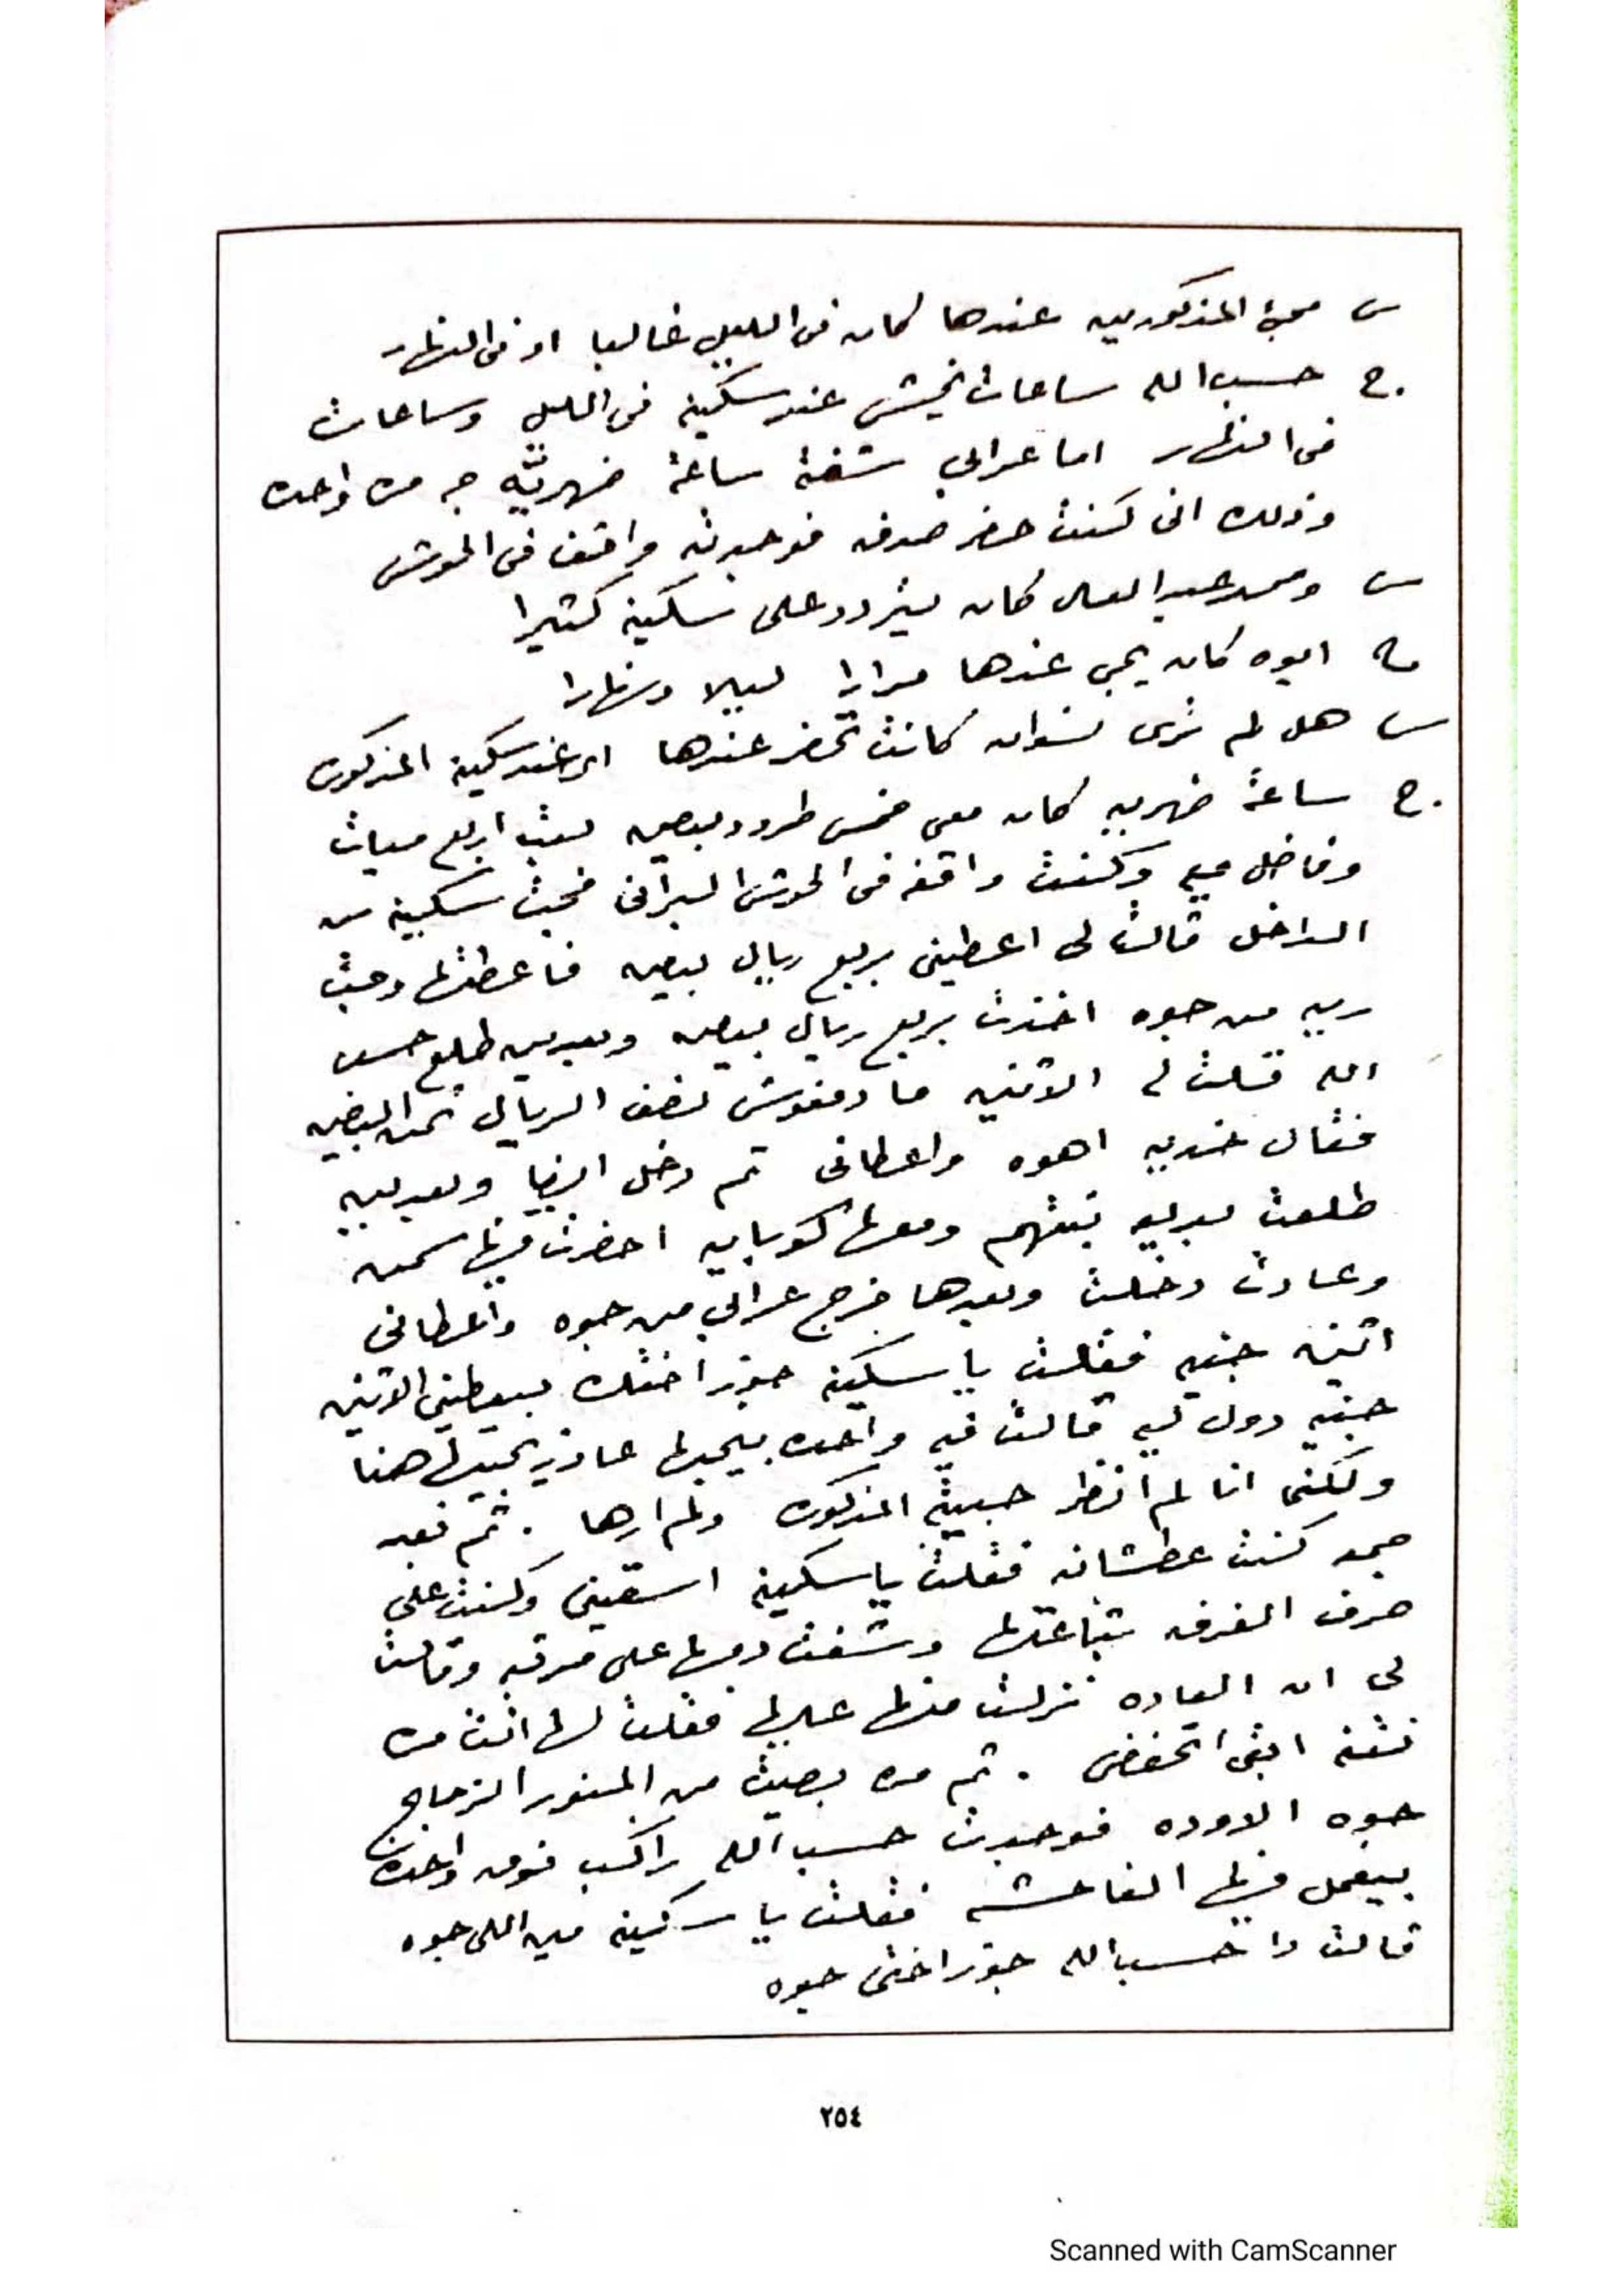 س مجئ المذكورين عندها كان فى الليل غالبا او فى النهار
ج. حسب الله ساعات يخش عند سكينه فى الليل وساعات
فى النهار اما عرابى شفته ساعة ضهريه جه مره واحده
وذلك انى كنت حضر صدفه فوجدته واقف فى الحوش
س ومحمد عبد العال كان يتردد على سكينه كثيرا
ج ايوه كان يجى عندها مرارا ليلا ونهارا
س هل لم ترى نسوان كانت تحضر عندها اى عند سكينه المذكوره
ج. ساعة ضهريه كان معى خمس طرود بيض بعت اربع
وفاضل وكنت واقفه فى الحوش البرانى فجت سكينه من
الداخل قالت لى اعطينى بربع ريال بيض فاعطتها وجت
ريه من جوه اخذت بربع ريال بيض وبعدين طلع حسب
الله قلت له الاتنين ما دفعوش نصف الريال تمن البيض
فقال خديه اهوه واعطانى ثم دخل ايضا وبعدين
طلعت بديعه بنتهم ومعها كوبايه احضرت فيها سمن
وعادت دخلت وبعدها خرج عرابى من جوه واعطانى
اتنين جنيه فقلت يا سكينه جوز اختك بيعطينى الاتنين
جنيه دول ليه قالت فيه واحده بيحبها عاوز يجيبها هنا
ولكن انا لم انظر حبيبته المذكوره ولم ارها . ثم بعد
جمعه كنت عطشانه فقلت يا سكينه اسقينى وكنت على
حرف الغرفه بتاعتها وشفت دمها على مرتبه وقالت
لى ان العاده نزلت منها عليها فقلت لها انت مره
نتنه ابقى اتحفضى . ثم مره بصيت من المنور الزجاج
جوه الاوده فوجدت حسب الله راكب فوق واحده
بيفعل فيها الفاحشه فقلت يا سكينه مين اللى جوه
قالت دا حسب الله جوز اختى جوه
٢٥٤
Scanned with CamScanner